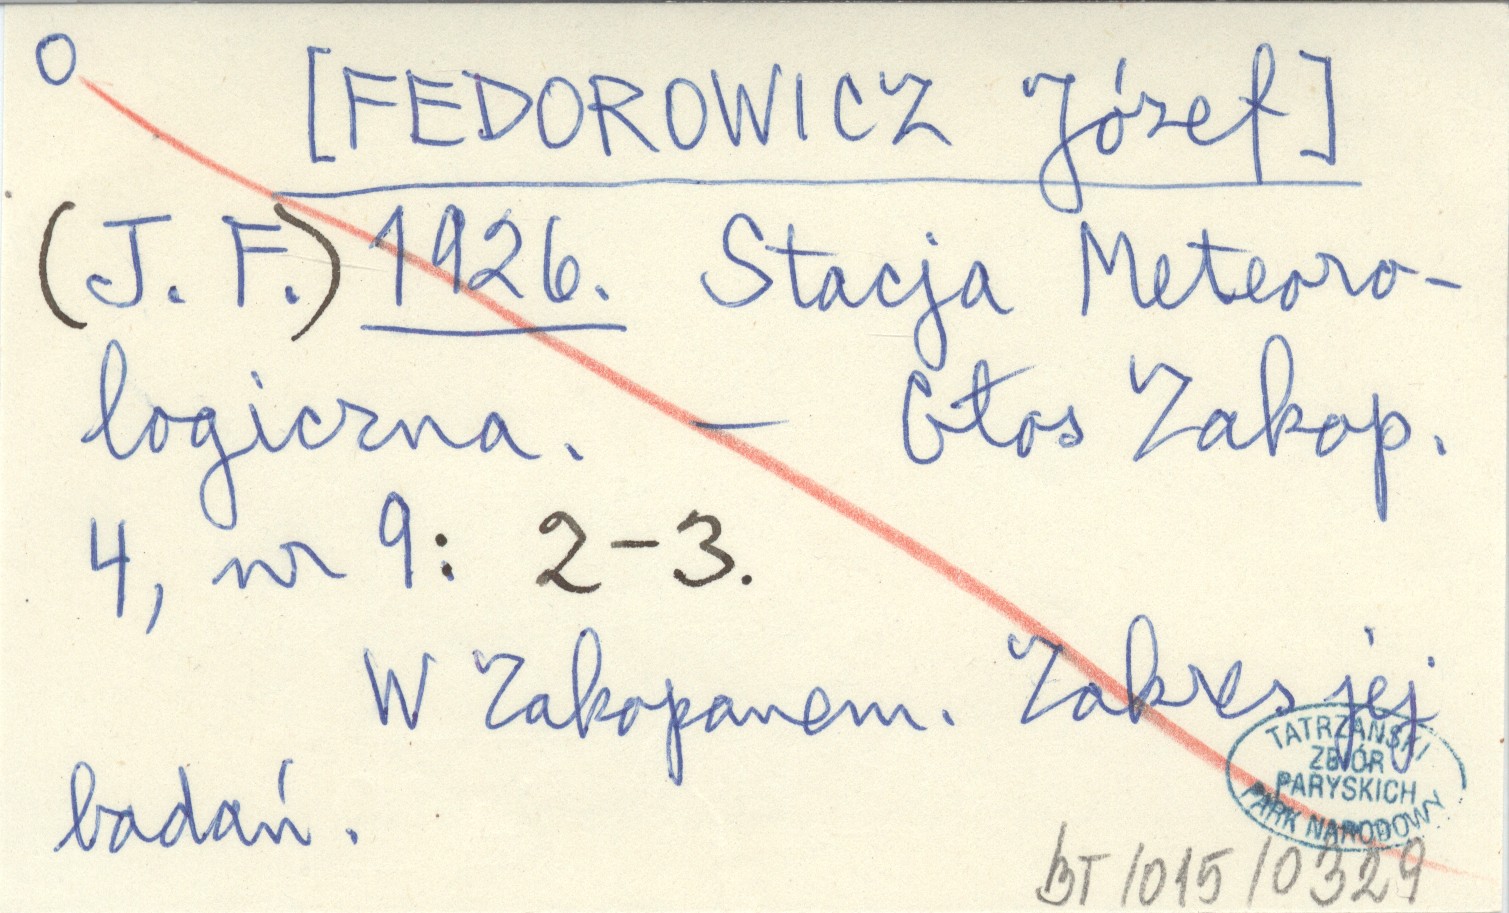 O
[FEDOROWICZ Józef]
(J. F.) 1926. Stacja Meteoro-
logiczna. — Głos Zakop.
4, nr 9: 2-3.
W Zakopanem. Zakres jej
badań.
TATRZAŃSKI
ZBIÓR
PARYSKICH
PARK NARODOWY
BT/015/0329